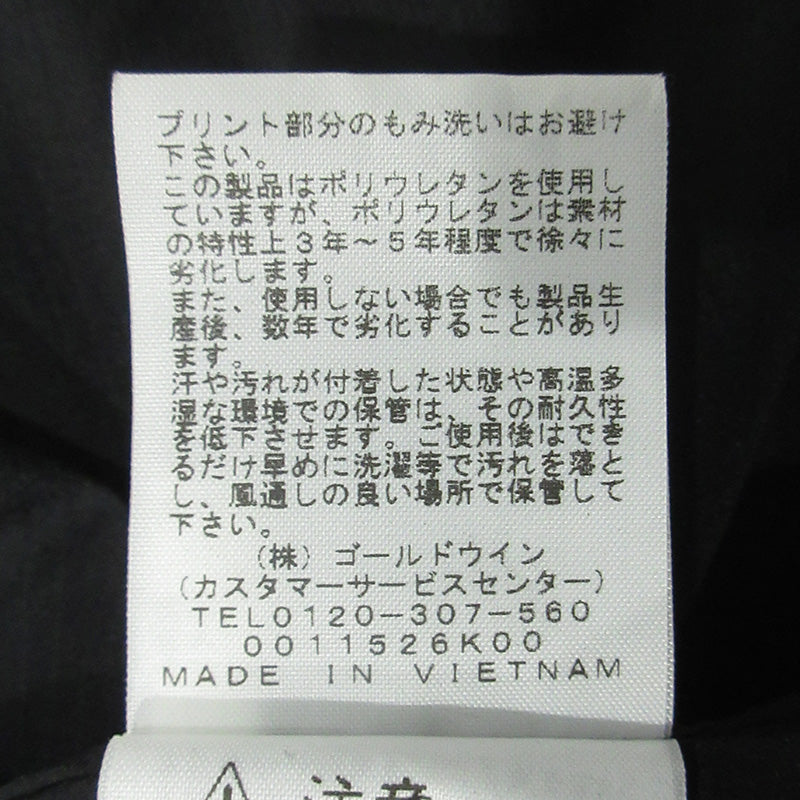 プリント部分のもみ洗いはお避け
下さい。
この製品はポリウレタンを使用し
ていますが、ポリウレタンは素材
の特性上３年～５年程度で徐々に
劣化します。
また、使用しない場合でも製品生
産後、数年で劣化することがあり
ます。
汗や汚れが付着した状態や高温多
湿な環境での保管は、その耐久性
を低下させます。ご使用後はでき
るだけ早めに洗濯等で汚れを落と
し、風通しの良い場所で保管して
下さい。
（株）ゴールドウイン
（カスタマーサービスセンター）
ＴＥＬ０１２０－３０７－５６０
００１１５２６Ｋ００
ＭＡＤＥ　ＩＮ　ＶＩＥＴＮＡＭ
注意